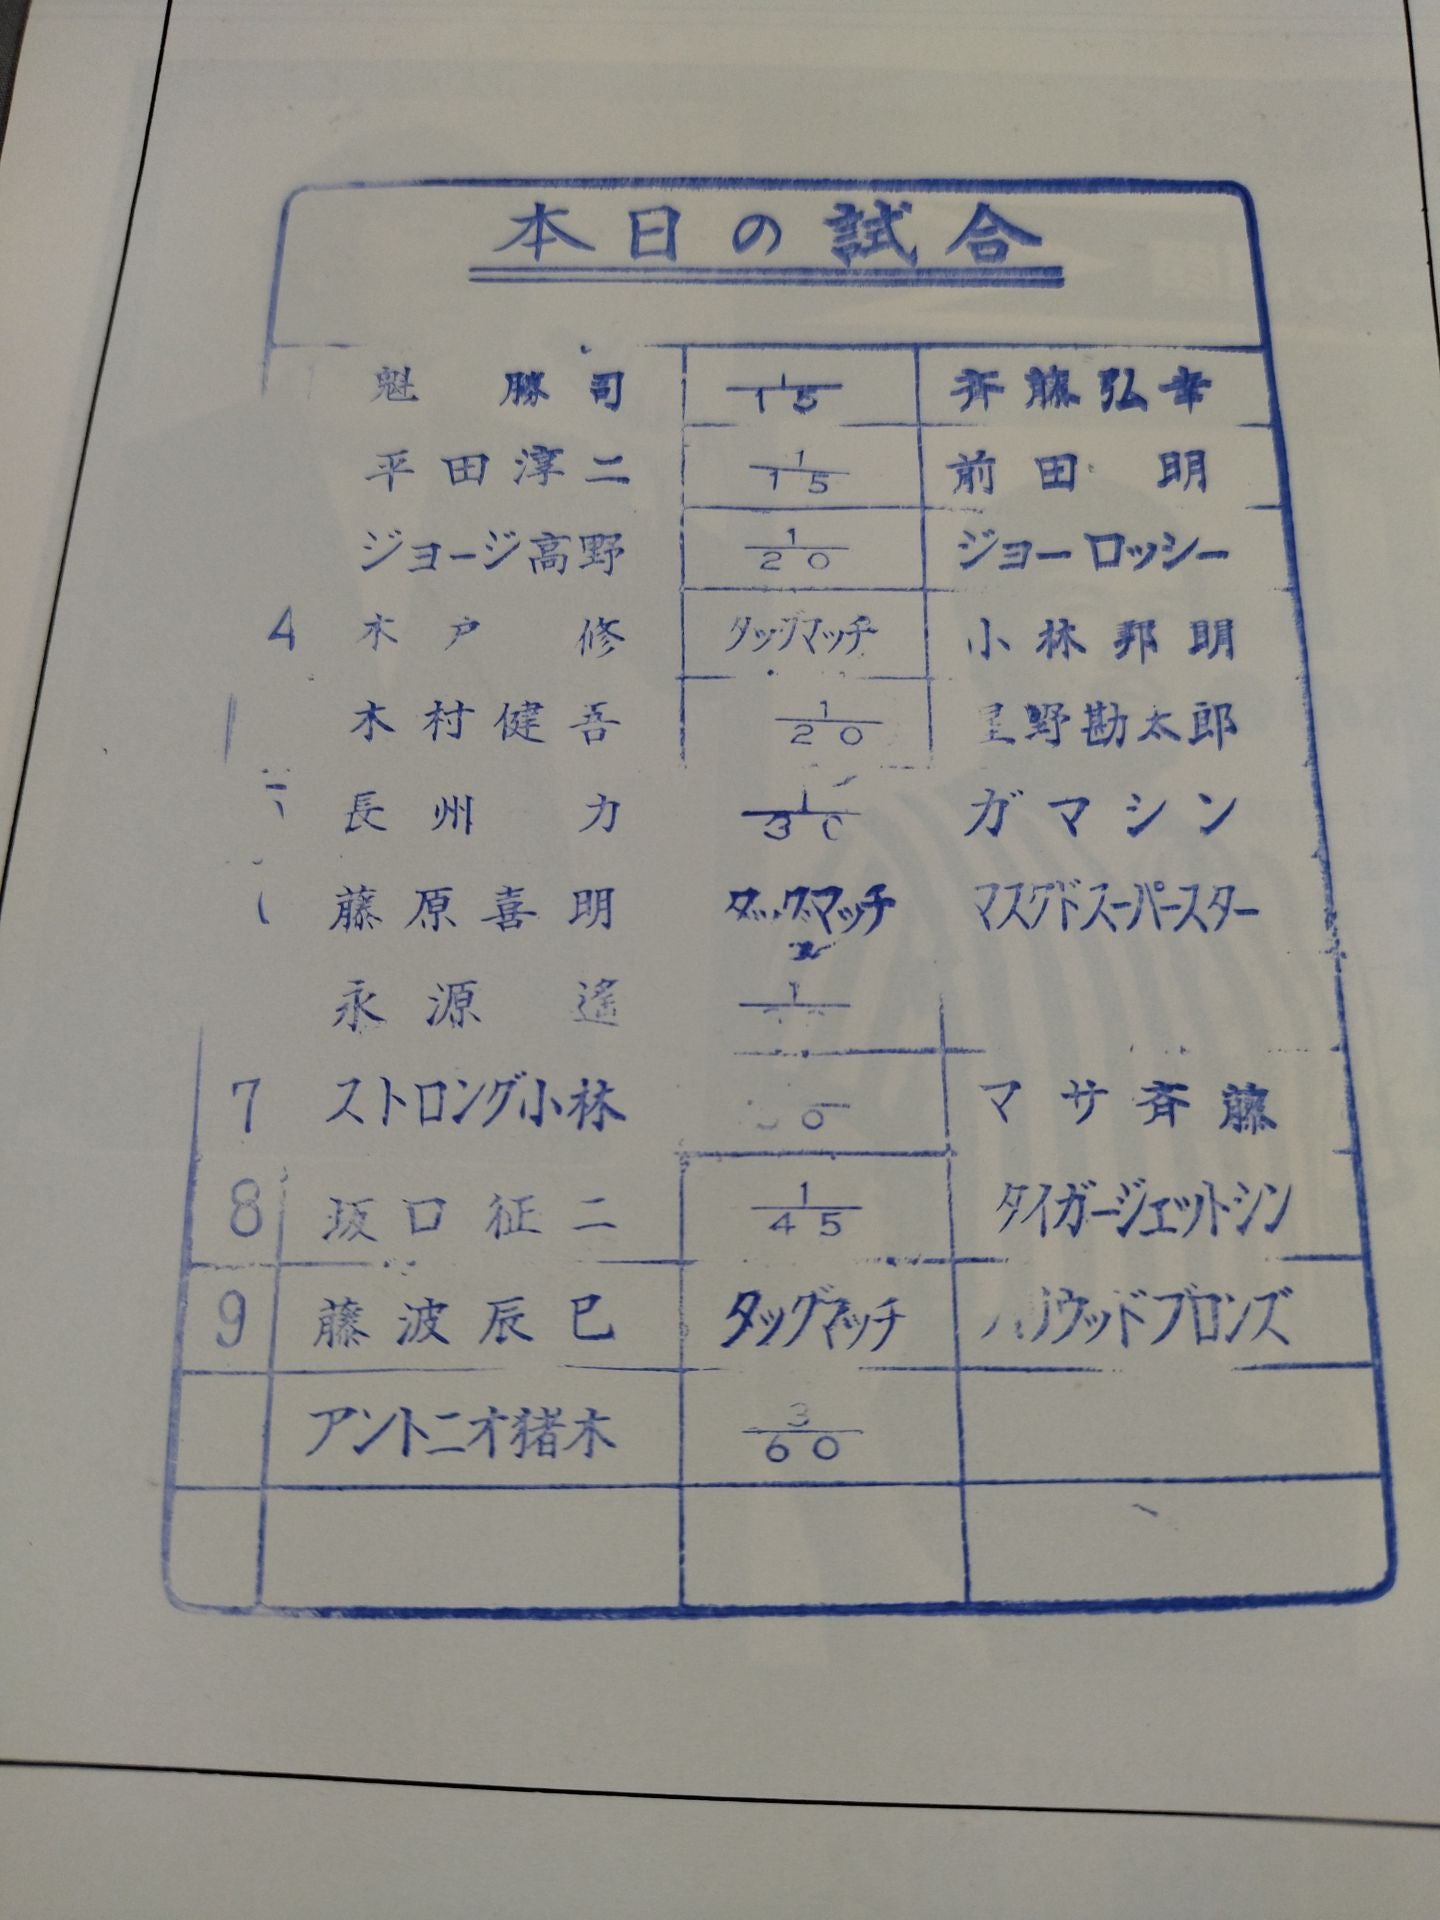 本日の試合
魁 勝司 1/15 斉藤弘幸
平田淳二 1/15 前田 明
ジョージ高野 1/20 ジョーロッシー
4 木戸 修 タッグマッチ 小林邦明
木村健吾 1/20 星野勘太郎
長州 力 1/30 ガマシン
藤原喜明 タッグマッチ マスクドスーパースター
永源 遙 1
7 ストロング小林 0 マサ斉藤
8 坂口征二 1/45 タイガージェットシン
9 藤波辰巳 タッグマッチ ハリウッドブロンズ
アントニオ猪木 3/60